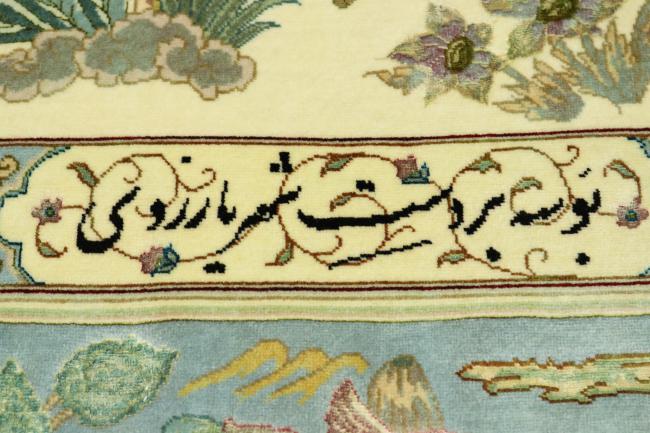 بوسه بر دست شهریار زدی